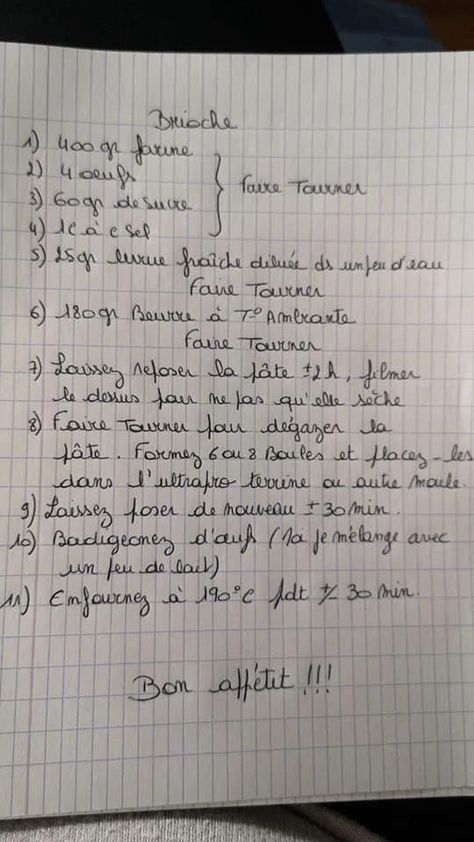 Brioche
1) 400gr farine
2) 4 oeufs
3) 60gr de sucre } Faire Tourner
4) 1C à c sel
5) 25gr levure fraîche diluée ds un peu d'eau
Faire Tourner
6) 180gr Beurre à T° Ambiante
Faire Tourner
7) Laissez reposer la pâte ±2h, filmer
le dessus pour ne pas qu'elle sèche
8) Faire Tourner pour dégazer la
pâte. Formez 6 ou 8 Boules et placez-les
dans l'ultrapro terrine ou autre moule.
9) Laissez poser de nouveau ± 30 min.
10) Badigeonez d'œuf (Ma je mélange avec
un peu de lait)
11) Enfournez à 190°C pdt +/- 30 min.
Bon appétit !!!